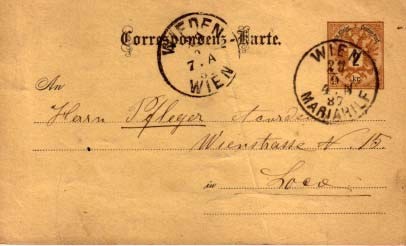 Correspondenz-Karte.
WIEDEN
7.A
WIEN
WIEN
MARIAHILF
87
2
An
Herrn Pfleger
Wienstrasse N. 15
in Loco